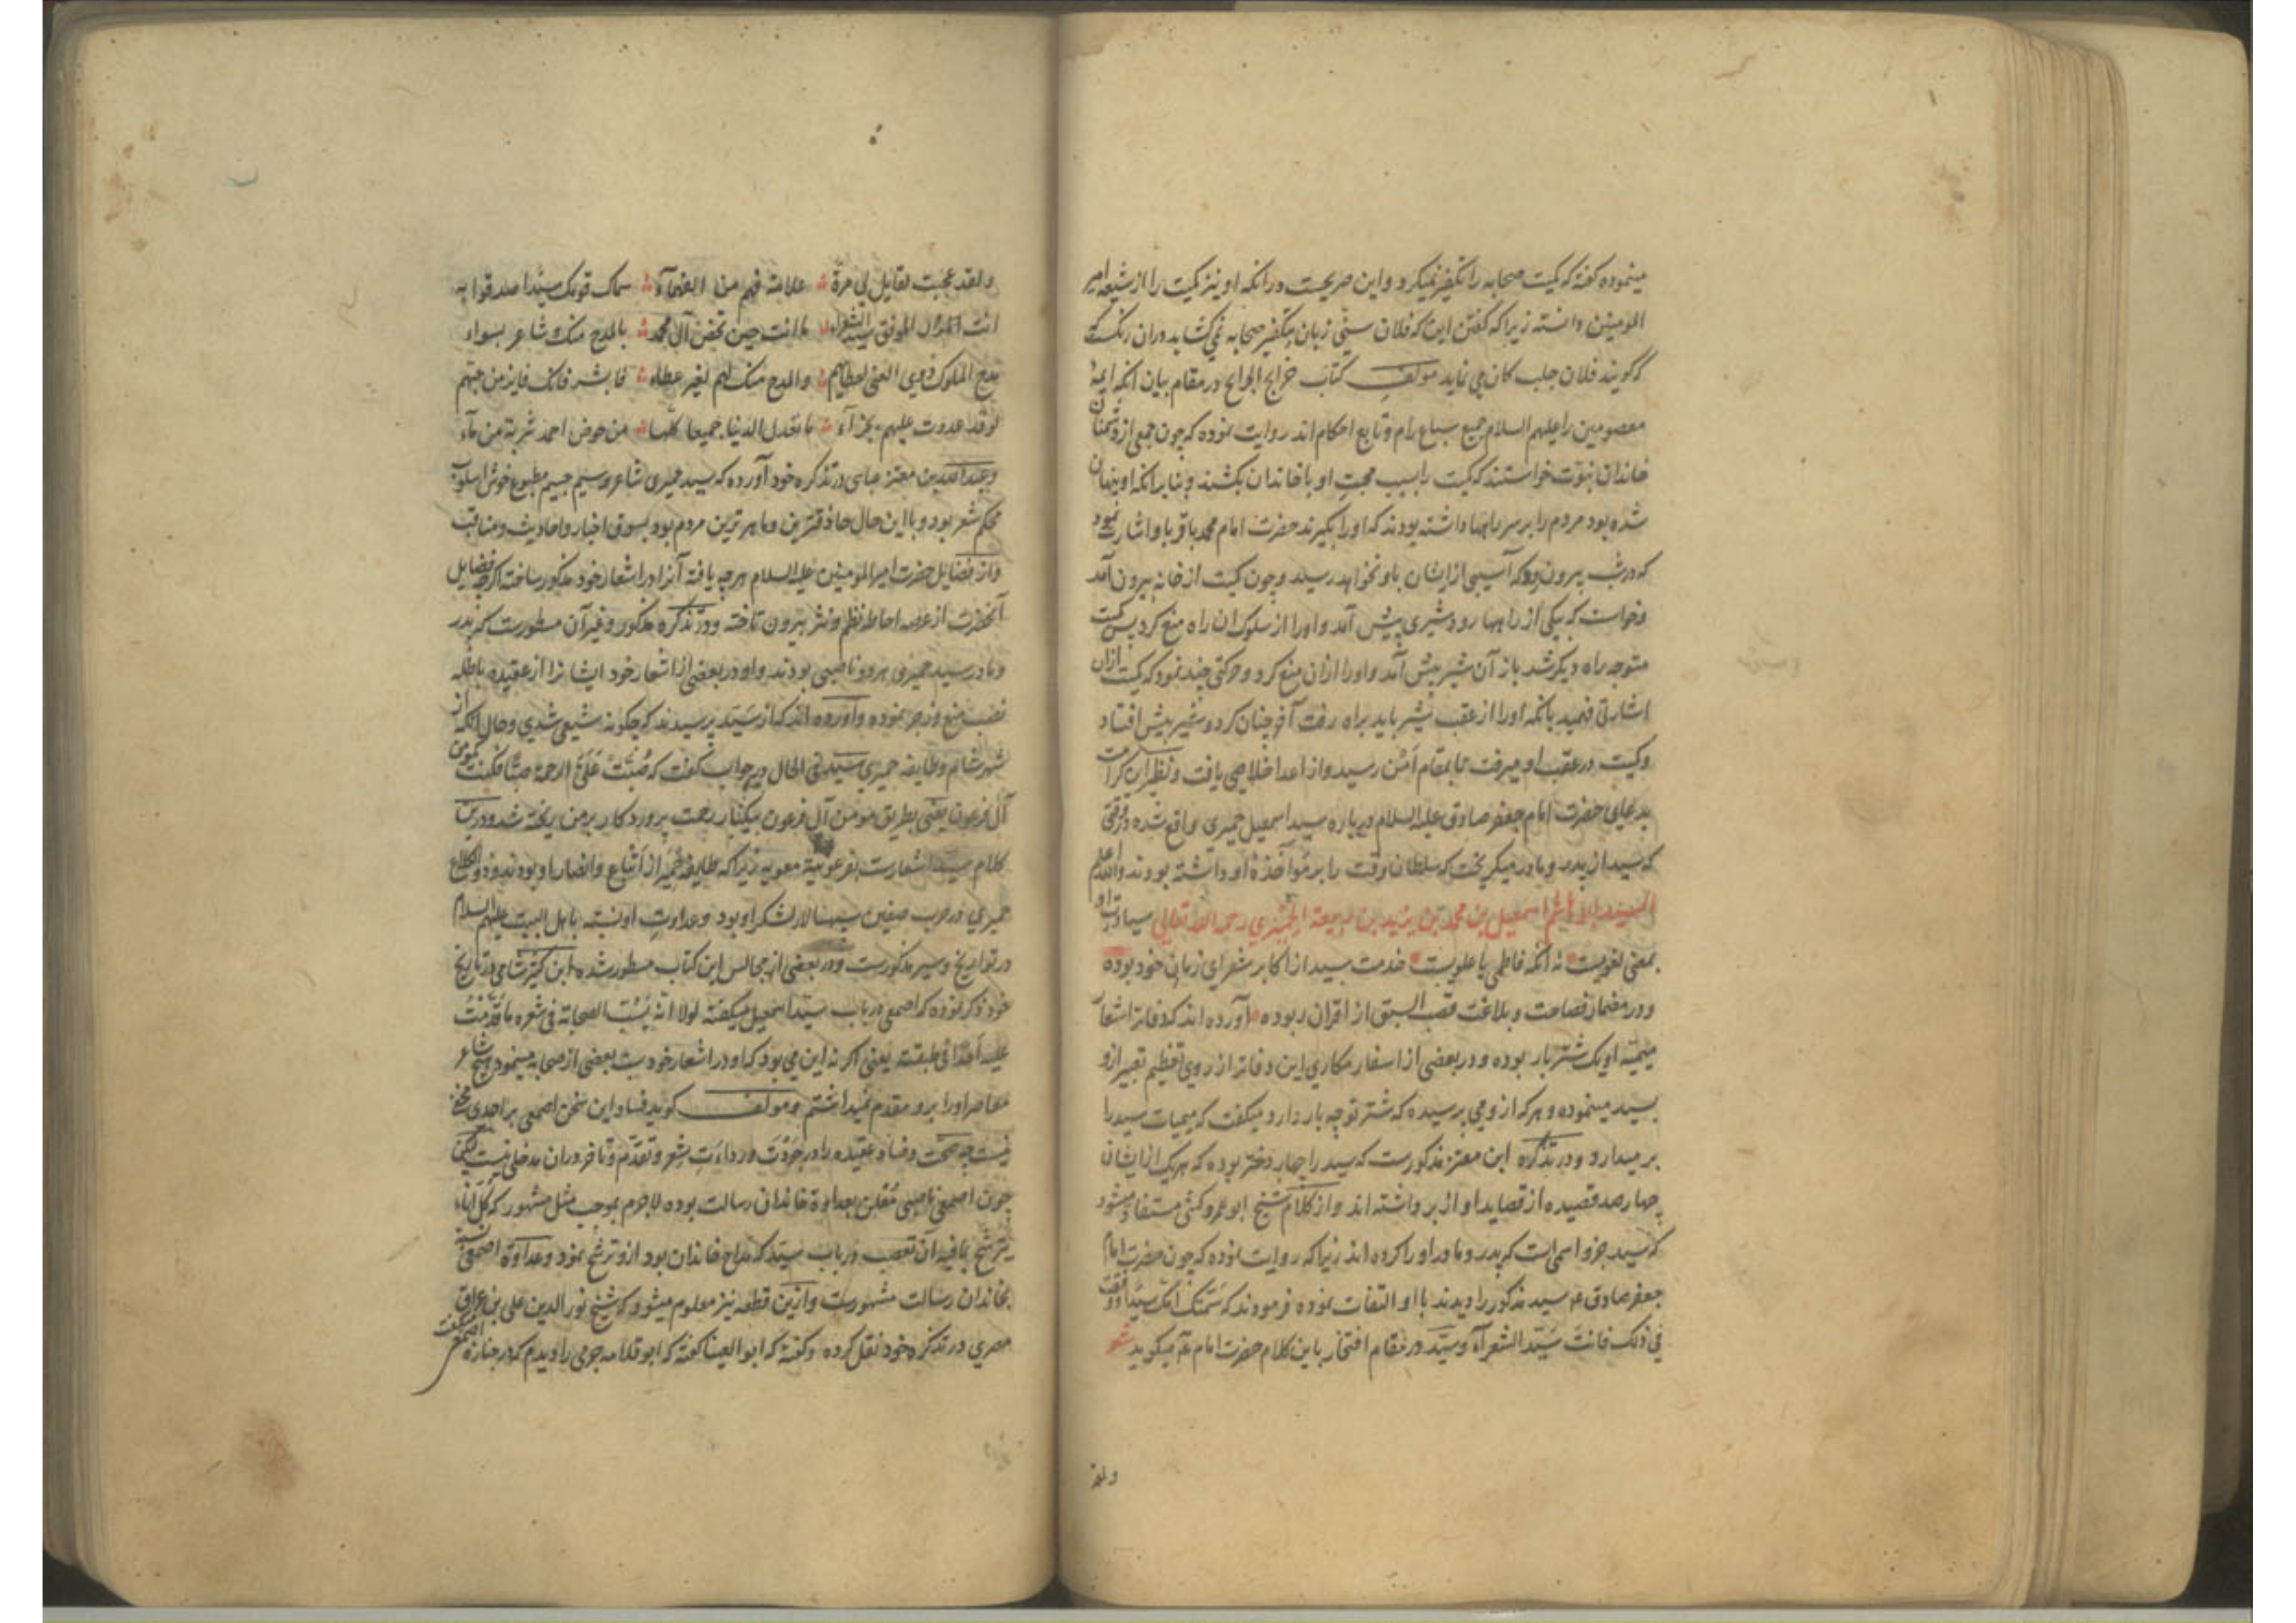 مینموده گفته که کمیت صحابه را تکفیر نمیکرد و این صریحست در آنکه او نیز کمیت را از شیعه امیر
المومنین دانسته زیرا که گفتن این که فلان سنی زبان بتکفیر صحابه نمی کشاید دران رنکست که
گویند فلان جلب کان می نماید مولف کتاب خرایج الجرایح در مقام بیان آنکه ایمهٔ
معصومین را علیهم السلام جمیع سباع رام و تابع احکام اند روایت نموده که چون جمعی از دشمنان
خاندان نبوت خواستند که کمیت را بسبب محبت او با خاندان بکشند و بنابرآنکه او پنهان
شده بود مردم را بر سر راهها داشته بودند که اورا بکیرند حضرت امام محمد باقر باو اشارت نمود
که در شب بیرون رو که آسیبی از ایشان باو نخواهد رسید و چون کمیت از خانه بیرون آمد
و خواست که بیکی از راهها رود شیری پیش آمد و اورا از سلوک ان راه منع کرد پس کمیت
متوجه راه دیکر شد باز آن شیر پیش آمد و اورا ازان منع کرد و حرکتی چند نمود که کمیت ازان
اشارتی فهمید بانکه اورا از عقب شیر باید براه رفت آخر چنان کرد و شیر پیش افتاد
و کمیت در عقب او میرفت تا بمقام امن رسید و از اعدا خلاصی یافت و نظیر این کرامت
بدعای حضرت امام جعفر صادق علیه السلام در باره سید اسمعیل حمیری واقع شده در وقتی
که سید از پدر و مادر میکریخت که سلطان وقت را بر مؤاخذهٔ او داشته بودند والله اعلم
السید اسمعیل بن محمد بن یزید بن ربیعة الحمیری رحمه الله تعالی سیادت او
بمعنی لغویست نه آنکه فاطمی یا علویست خدمت سید از اکابر شعرای زمان خود بوده
و در مضمار فصاحت و بلاغت قصب السبق از اقران ربوده آورده اند که دفاتر اشعار
میمیّه او یک شتر بار بوده و در بعضی از اسفار مکاری این دفاتر از روی تعظیم تعبیر ازو
بسید مینموده و هر که ازو می پرسیده که شتر تو چه بار دارد میکفت که میمیات سید را
بر میدارد و در تذکره ابن معتز مذکورست که سید را چهار دختر بوده که هر یک از ایشان
چهار صد قصیده از قصاید او از بر داشته اند و از کلام شیخ ابو عمرو کشی مستفاد میشود
که سید جزو اسمی است که پدر و مادر اورا کرده اند زیرا که روایت نموده که چون حضرت امام
جعفر صادق عم سید مذکور را دیدند با او التفات نموده فرمودند که سمتک امک سیدا و وفقت
فی ذلک فانت سید الشعراء و سید در مقام افتخار باین کلام حضرت امام عم میکوید شعر
ولقد
ولقد عجبت لقایل لی مرة علامة فهم من الفهماء سماک قومک سیدا صدقوا به
انت الموفق سید الشعراء ما انت حین تخص آل محمد بالمدح منک و شاعر بسواء
مدح الملوک ذوی الغنی لعطایهم والمدح منک لهم لغیر عطاء فابشر فانک فایز من حبهم
لو قد غدوت علیهم بجزاء ما تعدل الدنیا جمیعا کلها من حوض احمد شربة من ماء
و عبد الله بن معتز عباسی در تذکره خود آورده که سید حمیری شاعر وسیم جسیم مطبوع خوش اسلوب
محکم شعر بود و با این حال حاذقترین و ماهرترین مردم بود بسوق اخبار و احادیث و مناقب
و از فضایل حضرت امیر المومنین علیه السلام هرچه یافته آنرا در اشعار خود مذکور ساخته اکرچه فضایل
آنحضرت از عرصه احاطه نظم و نثر بیرون تاخته و در تذکره مذکور و غیر آن مسطورست که پدر
و مادر سید حمیری هر دو ناصبی بودند و او در بعضی از اشعار خود ایشانرا از عقیده باطله
نصب منع و زجر نموده و آورده اند که از سید پرسیدند که چکونه شیعی شدی و حال آنکه از
شهر شام و طایفه حمیری سید فی الحال در جواب کفت که صبت علی الرحمة صبا فکنت کمومن
آل فرعون یعنی بطریق مومن آل فرعون بیکبار رحمت پروردکار بر من ریخته شد و درین
کلام سید اشعارست بفرعونیة معویه زیرا که طایفه حمیر از اتباع و انصار او بودند و ذو الکلاع
حمیری در حرب صفین سپهسالار لشکر او بود و عداوت او نسبت باهل البیت علیهم السلام
در تواریخ و سیر مذکورست و در بعضی از مجالس این کتاب مسطور شده ابن کثیر شامی در تاریخ
خود ذکر نموده که اصمعی در باب سید اسمعیل میکفته لولا انه یسب الصحابة فی شعره ما قدمت
علیه احدا فی طبقته یعنی اکر نه این می بود که او در اشعار خود سب بعضی از صحابه مینمود هیچ شاعر
معاصر اورا برو مقدم نمیداشتم و مولف کوید فساد این سخن اصمعی بر احدی مخفی
نیست چه صحت و فساد عقیده را در جودت و رداءت شعر و تقدم و تاخر دران مدخلی نیست لیکن
چون اصمعی ناصبی معلن بعداوة خاندان رسالت بوده لاجرم بموجب مثل مشهور که کل اناء
یترشح بما فیه آن تعصب در باب سید که مداح خاندان بود ازو ترشح نمود و عداوة اصمعی نسبت
بخاندان رسالت مشهورست و ازین قطعه نیز معلوم میشود که شیخ نور الدین علی بن عراق
مصری در تذکره خود نقل کرده و کفته که ابو العینا کفته که ابو قلابه جرمی را دیدم که در جنازه اصمعی میکفت